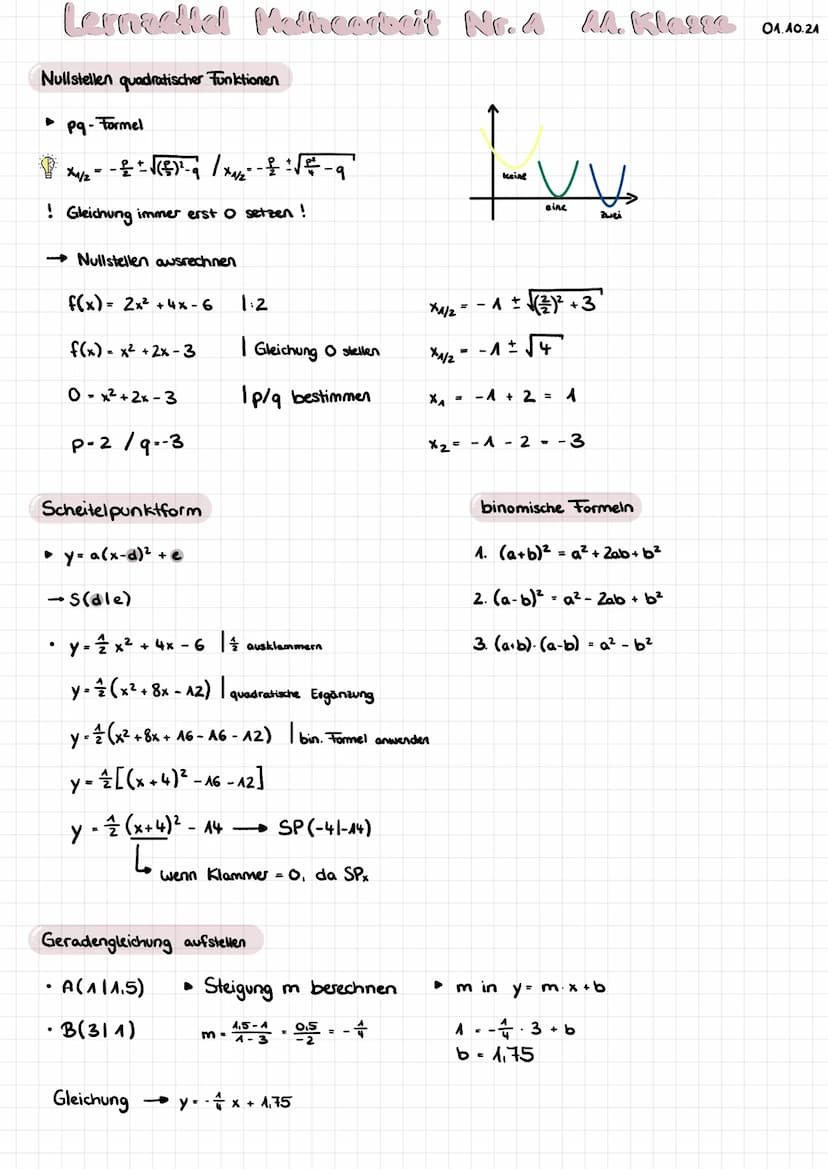 Lernzettel Mathearbeit Nr. 1 11. Klasse 01.10.21
Nullstellen quadratischer Funktionen
▸ pq-Formel
x₁/₂ = -p/2 ± √((p/2)²-q) / x₁/₂ = -p/2 ± √(p²/4 - q)
! Gleichung immer erst 0 setzen !
keine
eine
zwei
→ Nullstellen ausrechnen
f(x) = 2x² + 4x - 6 | :2
f(x) = x² + 2x - 3 | Gleichung 0 stellen
0 = x² + 2x - 3 | p/q bestimmen
p = 2 / q = -3
x₁/₂ = -1 ± √((2/2)² + 3)
x₁/₂ = -1 ± √4
x₁ = -1 + 2 = 1
x₂ = -1 - 2 = -3
Scheitelpunktform
▸ y = a(x-d)² + e
→ S(d|e)
• y = 1/2 x² + 4x - 6 | 1/2 ausklammern
y = 1/2 (x² + 8x - 12) | quadratische Ergänzung
y = 1/2 (x² + 8x + 16 - 16 - 12) | bin. Formel anwenden
y = 1/2 [(x + 4)² - 16 - 12]
y = 1/2 (x+4)² - 14 → SP(-4|-14)
wenn Klammer = 0, da SPₓ
binomische Formeln
1. (a+b)² = a² + 2ab + b²
2. (a-b)² = a² - 2ab + b²
3. (a+b)·(a-b) = a² - b²
Geradengleichung aufstellen
• A(1|1,5)
• B(3|1)
▸ Steigung m berechnen
m = 1,5-1/1-3 = 0,5/-2 = -1/4
▸ m in y = m·x+b
1 = -1/4 · 3 + b
b = 1,75
Gleichung → y = -1/4 x + 1,75